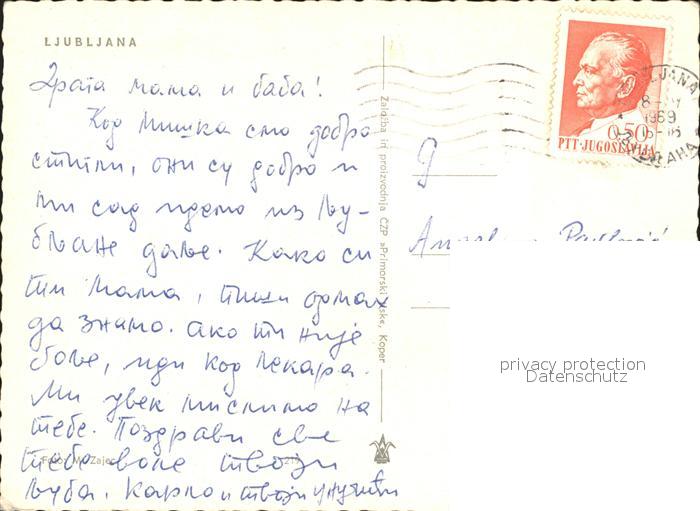 LJUBLJANA
Драга мама и баба!
Код Мишка смо добро
стигли, они су добро и
ми сад идемо из Љу-
бљане даље. Како си
ти мама, пиши одмах
да знамо. ако ти није
боље, иди код лекара.
Ми увек мислимо на
тебе. Поздрави све
тебе воле твоји
Љуба, Карло и твоји унучићи
Založba in proizvodnja ČZP »Primorski tisk«, Koper
Foto: M. Zajec
0,50
PTT · JUGOSLAVIJA
LJUBLJANA
1969
G
privacy protection
Datenschutz